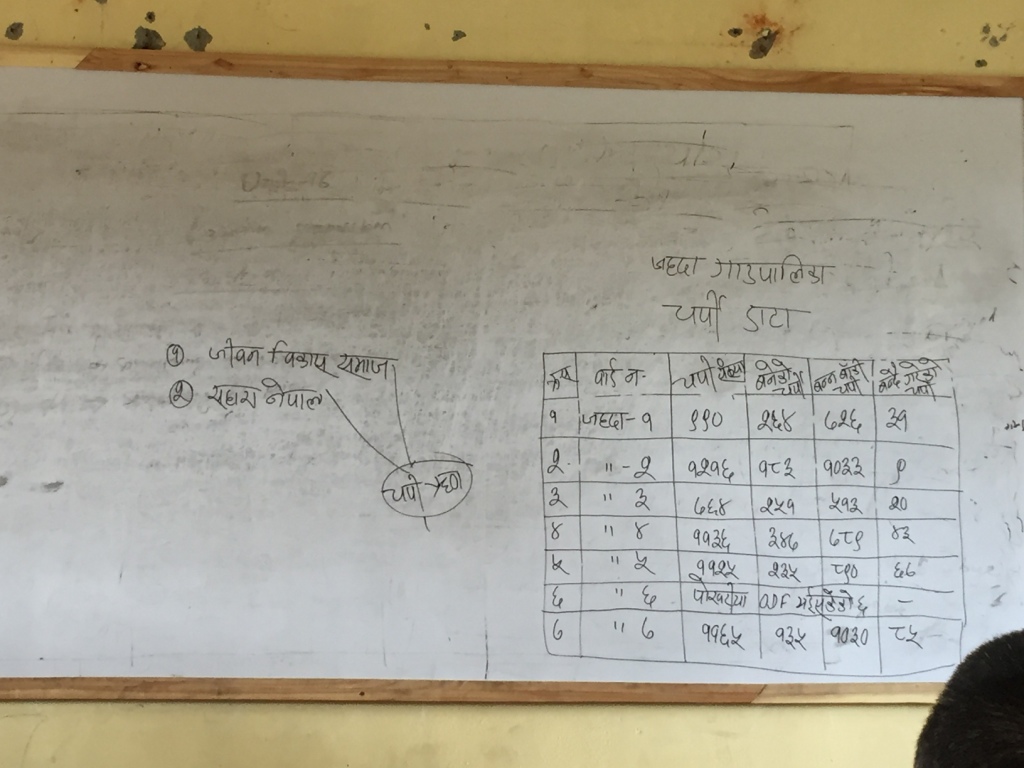 जहदा गाउपालिका
चर्पी डाटा
① जीवन विकास समाज
② सहारा नेपाल
चर्पी
क्र.स वार्ड न. चर्पी संख्या बनेको चर्पी बन्न बाँकी चर्पी
१ जहदा-१ ९९० २६४ ७२६ ३१
२. " -२ १२१६ १८३ १०३३ ९
३ " ३ ७६४ २५१ ५१३ २०
४ " ४ ११३६ ३४७ ७८९ ४३
५ " ५ ११२५ २३५ ८९० ६७
६ " ६ पोखरीया ODF भईसकेको छ -
७ " ७ ११६५ १३५ १०३० ८५